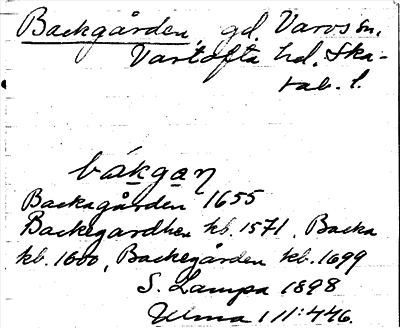 Backgården, gd. Varvs sn,
Vartofta hd. Ska-
rab. l.
bákgaɳ
Backagården 1655
Backegardhen kb. 1571, Backa
kb. 1600, Backegården kb. 1699
S. Lampa 1898
Ulma 111:446.